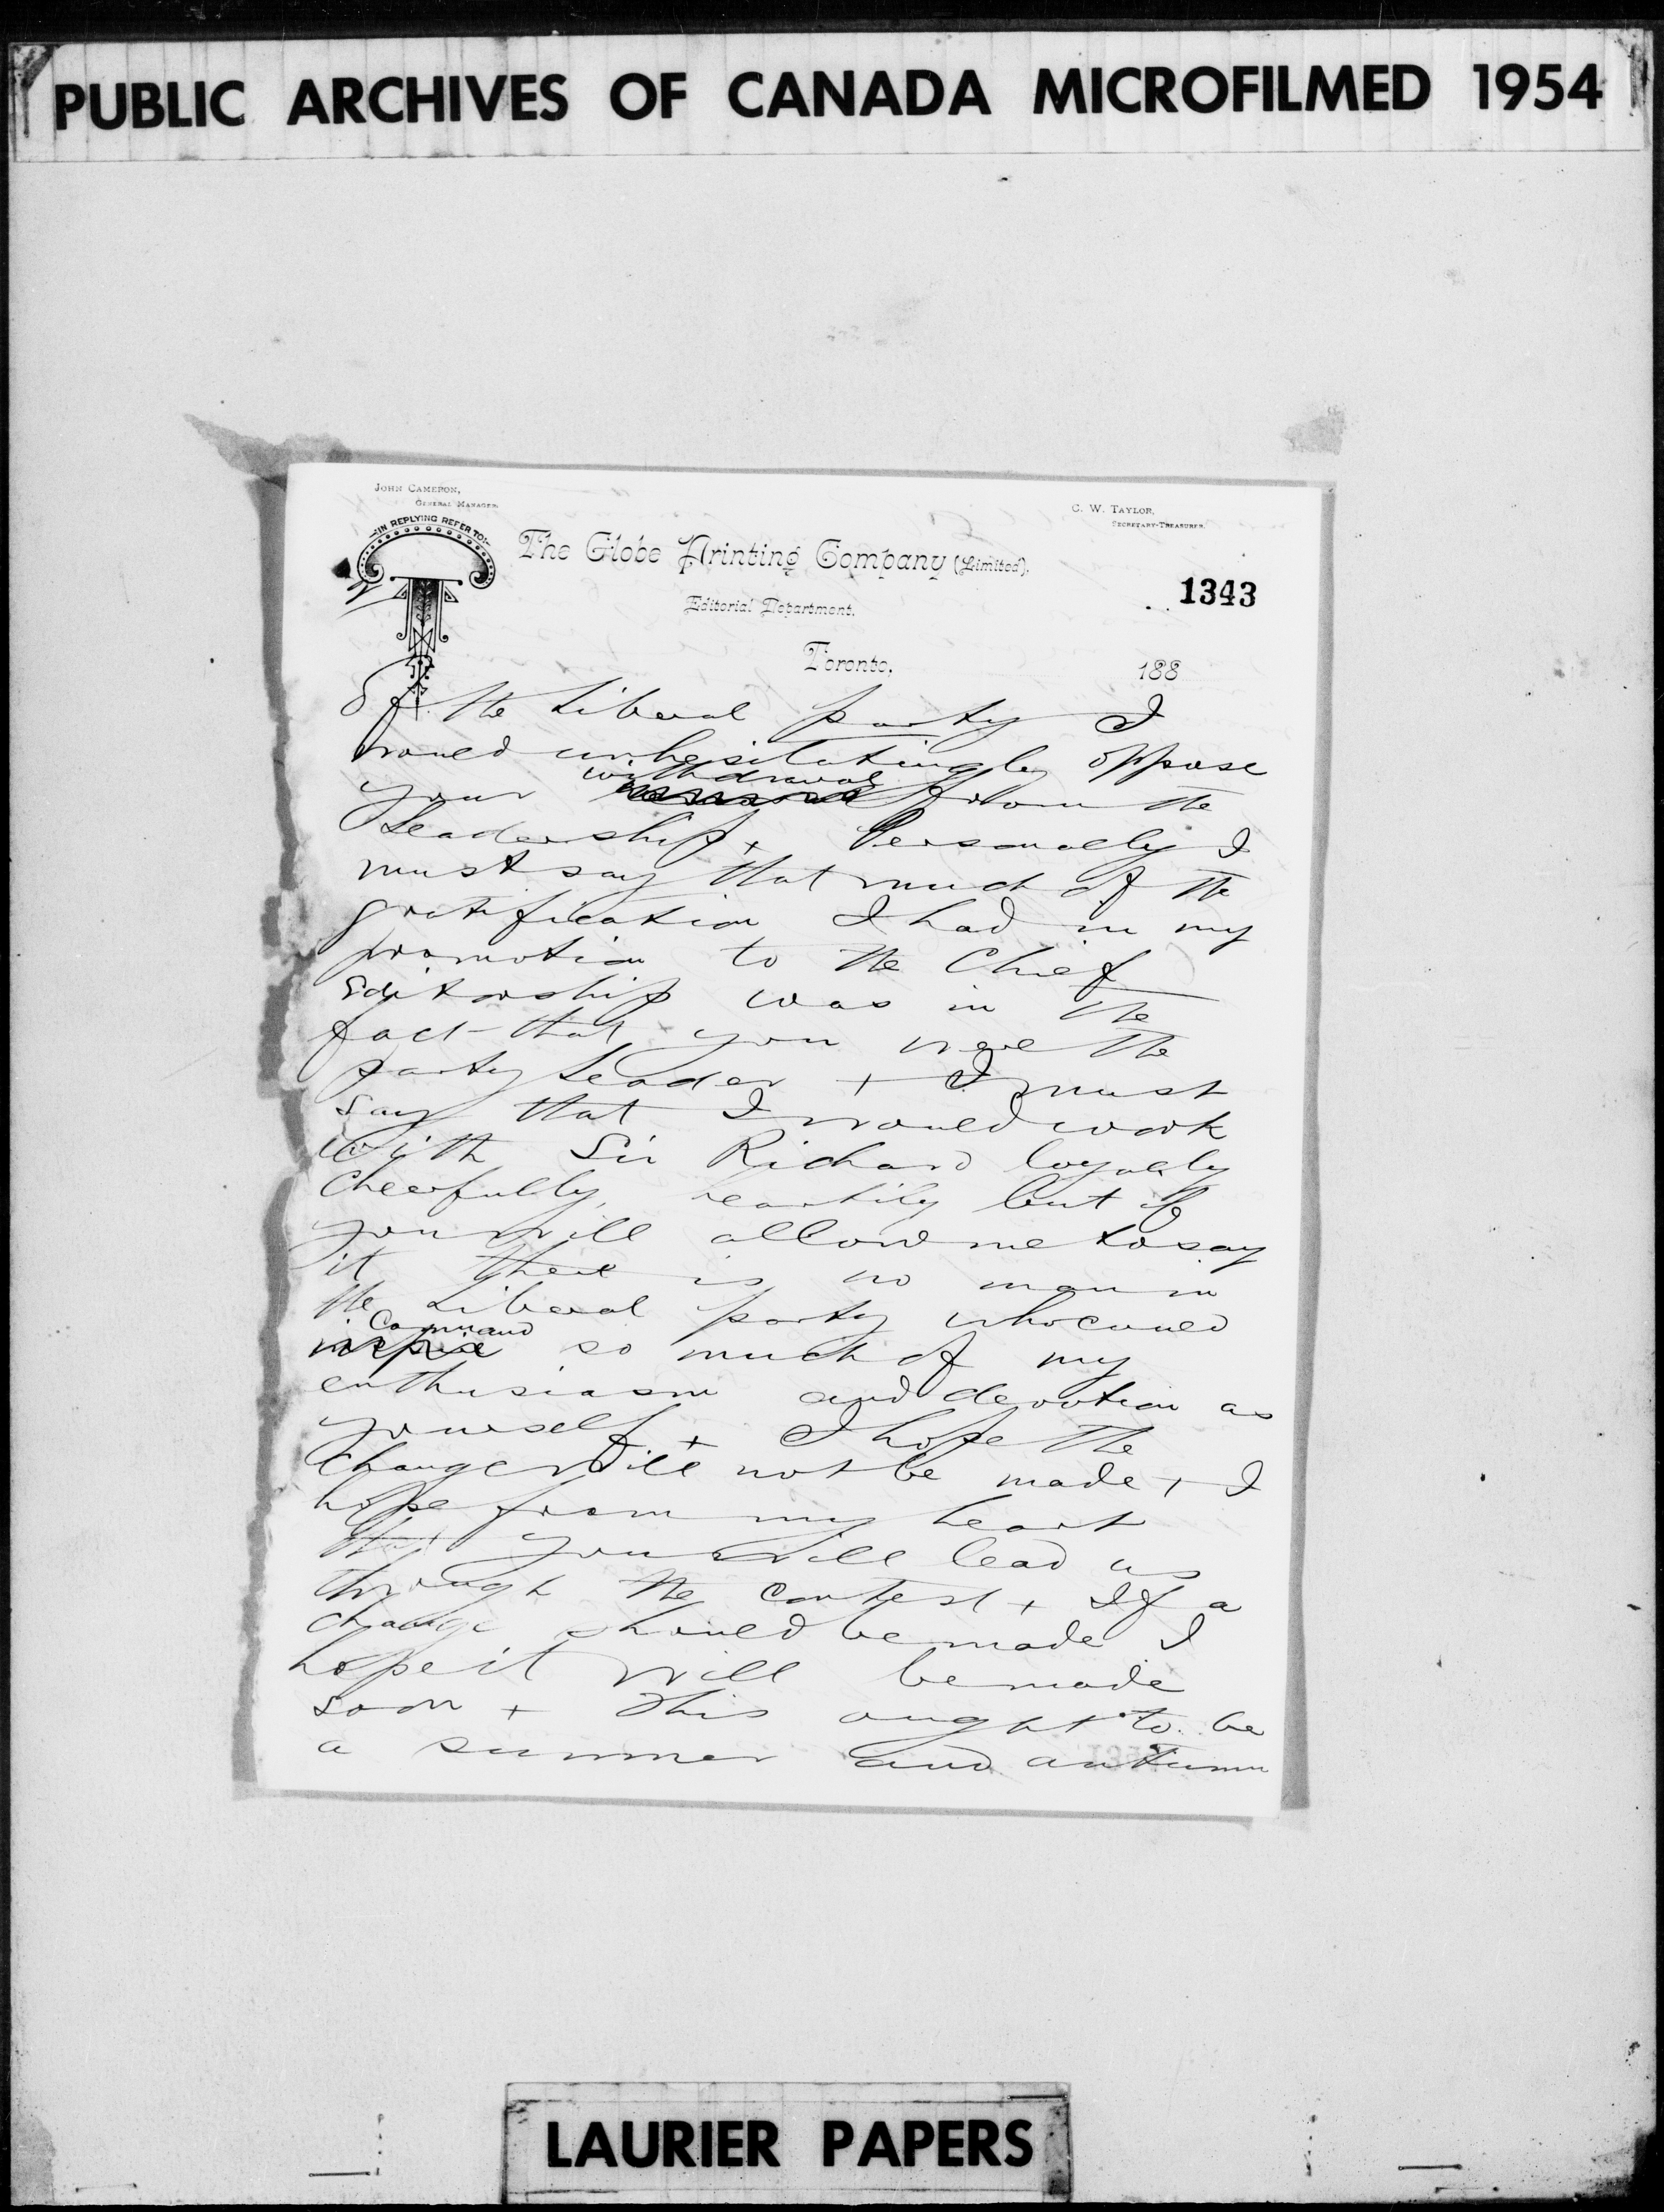 PUBLIC ARCHIVES OF CANADA MICROFILMED 1954
JOHN CAMERON,
GENERAL MANAGER.
C. W. TAYLOR,
SECRETARY-TREASURER.
IN REPLYING REFER TO:
The Globe Printing Company (Limited).
1343
Editorial Department.
Toronto, 188
Of the Liberal party I
would unhesitatingly oppose
withdrawal
your from the
Leadership + Personally I
must say that much of the
gratification I had in my
promotion to the Chief
Editorship was in the
fact that you were the
party leader + I must
say that I would work
with Sir Richard loyally
cheerfully, heartily but if
you will allow me to say
it there is no man in
the Liberal party who could
Command
inspire so much of my
enthusiasm and devotion as
yourself + I hope the
change will not be made + I
hope from my heart
that you will lead us
through the contest + If a
change should be made I
hope it will be made
soon + This ought to be
a summer and autumn
LAURIER PAPERS